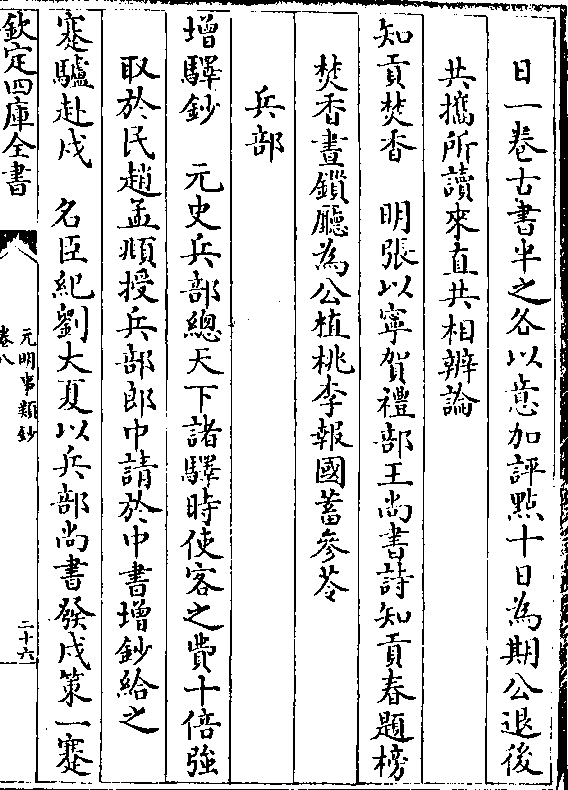 日一卷古書半之各以意加評㸃十日為期公退後
共攜所讀來直共相辨論
知貢焚香　明張以寧賀禮部王尚書詩知貢春題榜
焚香晝鎖廳為公植桃李報國蓄參苓
兵部
增驛鈔　元史兵部總天下諸驛時使客之費十倍強
取於民趙孟頫授兵部郎中請於中書增鈔給之
蹇驢赴戍　名臣紀劉大夏以兵部尚書發戍策一蹇
欽定四庫全書
元明事類鈔
卷八
二十六